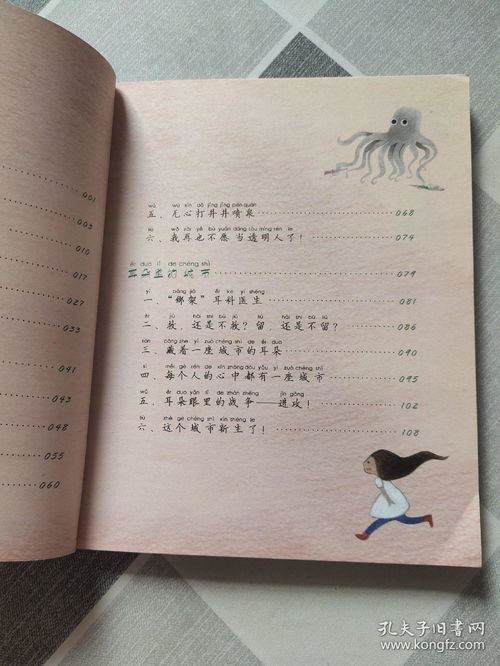 001
003
010
017
027
033
041
043
048
055
060
wú xīn dǎ jǐng jǐng pēn quán
五、无心打井井喷泉 068
liù wǒ zài yě bú yuàn dāng tòu míng rén le
六、我再也不愿当透明人了! 074
ěr duo lǐ de chéng shì
耳朵里的城市 079
yī bǎng jià ěr kē yī shēng
一、“绑架”耳科医生 081
èr jiù hái shi bú jiù liú hái shi bù liú
二、救,还是不救?留,还是不留? 086
sān cáng zhe yí zuò chéng shì de ěr duo
三、藏着一座城市的耳朵 090
sì měi gè rén de xīn zhōng dōu yǒu yí zuò chéng shì
四、每个人的心中都有一座城市 095
wǔ ěr duo yǎn lǐ de zhàn zhēng jìn gōng
五、耳朵眼里的战争——进攻! 102
liù zhè gè chéng shì xīn shēng le
六、这个城市新生了! 108
孔夫子旧书网
www.kongfz.com